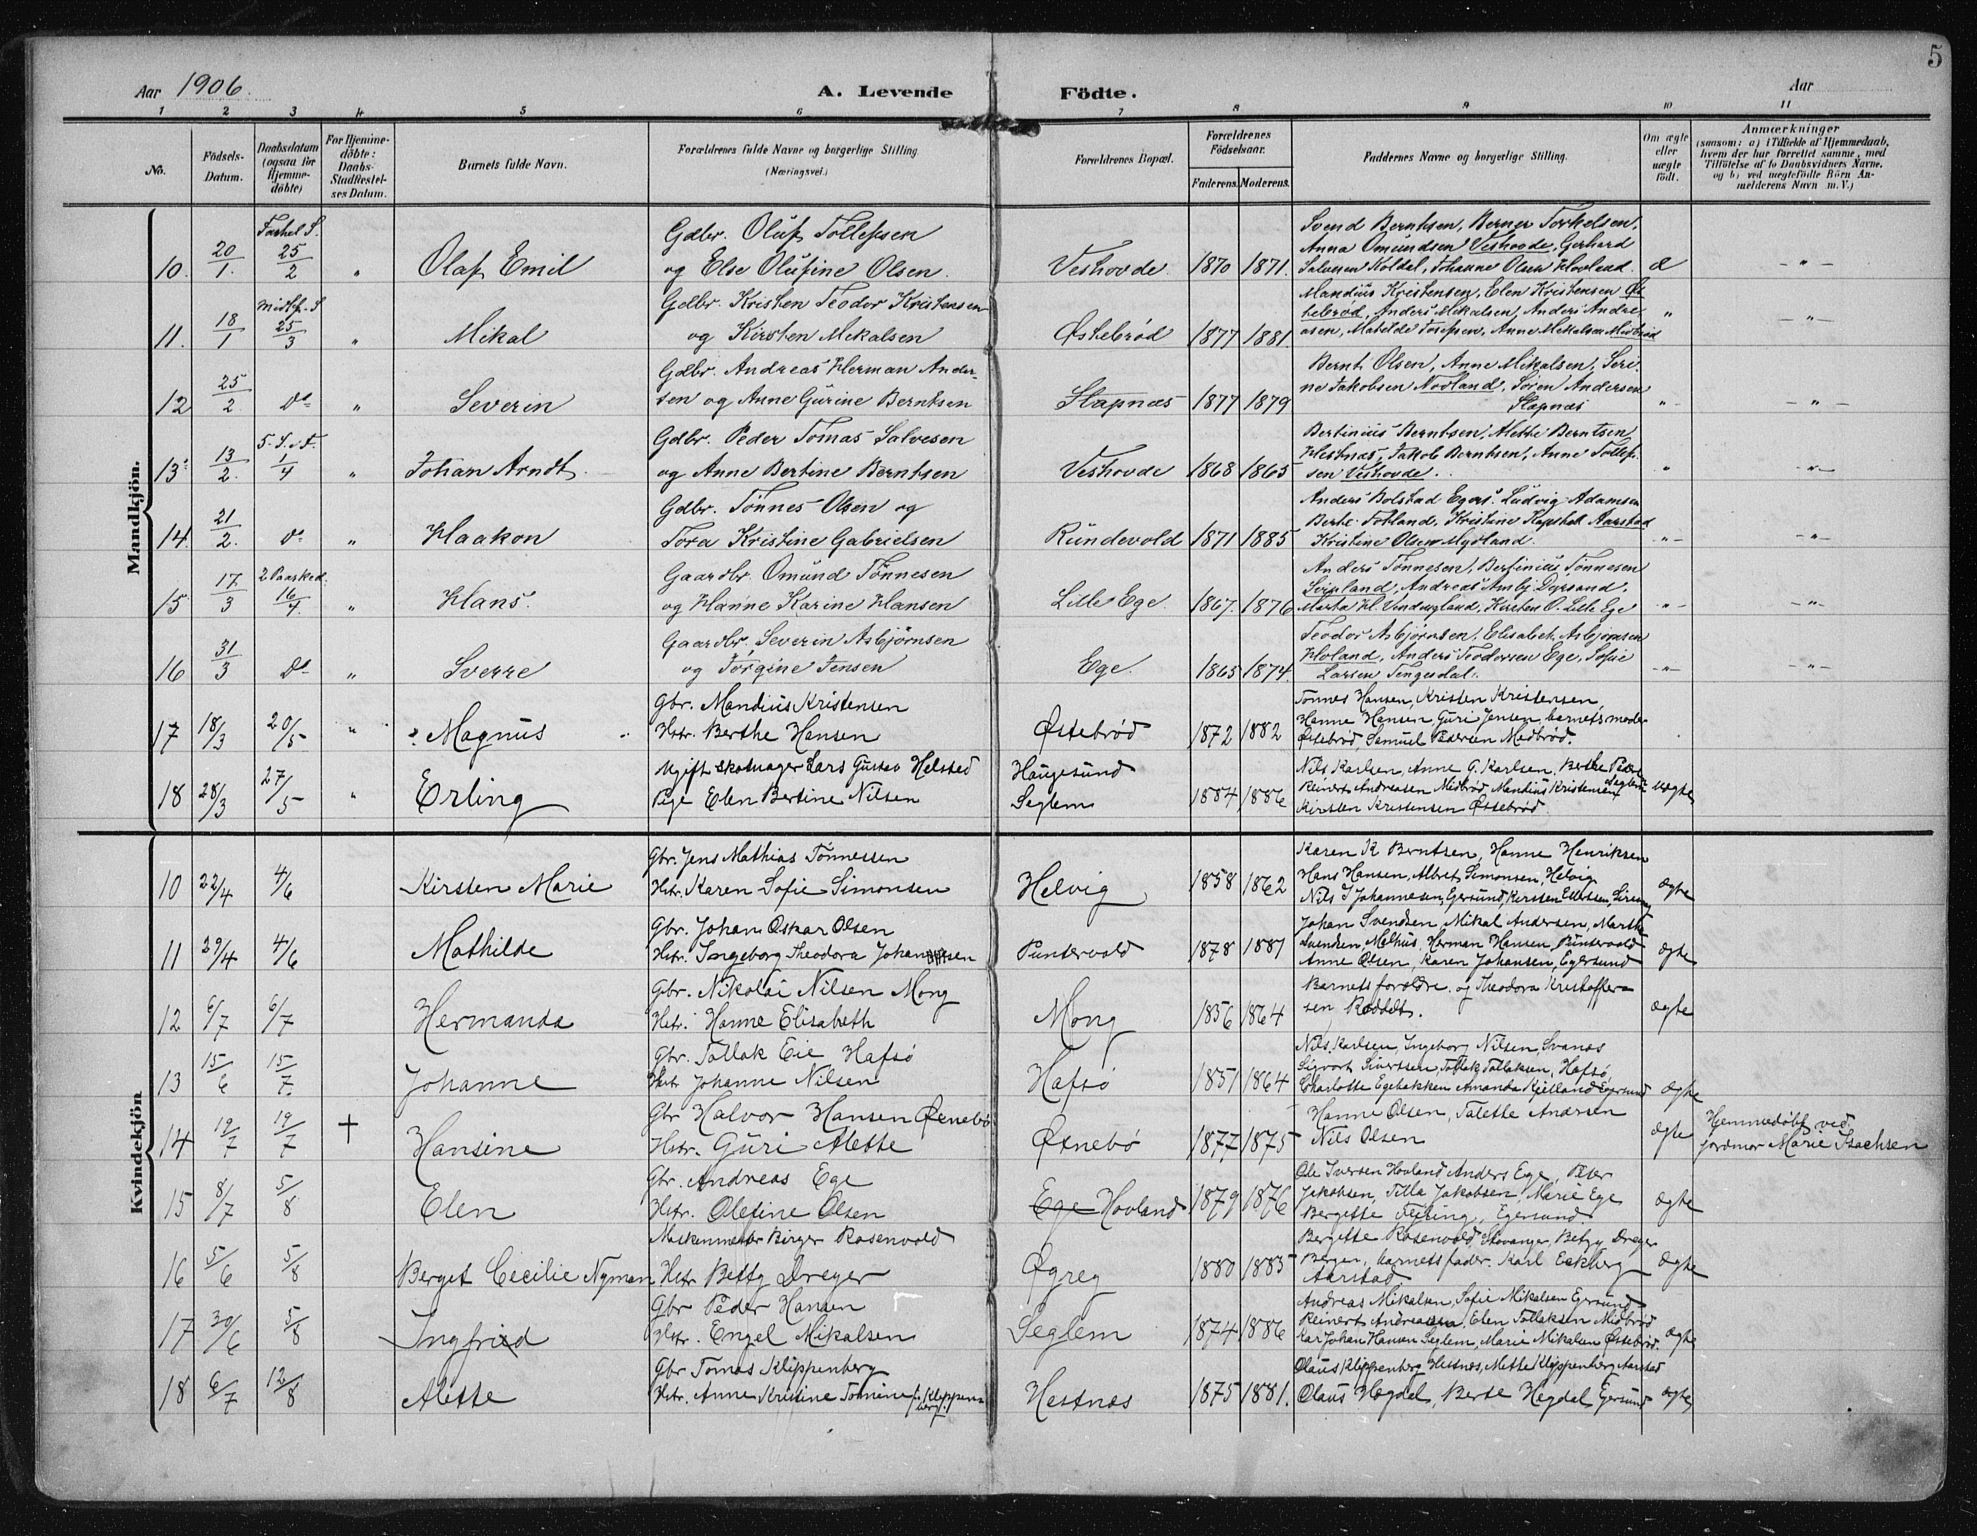 5
Aar 1906. A. Levende Födte. Aar
1 2 3 4 5 6 7 8 9 10 11
No.
Födsels-Datum.
Daabsdatum (ogsaa for Hjemmedöbte)
For Hjemmedöbte: Daabs-Stadfæstelses Datum.
Barnets fulde Navn.
Forældrenes fulde Navne og borgerlige Stilling (Næringsvei.)
Forældrenes Bopæl.
Forældrenes Födselsaar.
Faderens. Moderens.
Faddernes Navne og borgerlige Stilling.
Om ægte eller uægte födt.
Anmærkninger
(saasom: a) i Tilfælde af Hjemmedaab, hvem der har forrettet samme, med Tilföielse af to Daabsvidners Navne. og b) ved uegtefödte Börn Anmelderens Navn m. V.)
Mandkjön.
10. 20/1. 25/2 " Olaf Emil
Gdbr. Oluf Tollefsen
og Else Olufine Olsen.
Veshovde 1870 1871.
Svend Berntsen, Berner Torkelsen,
Anna Omundsen Veshovde, Gerhard
Salvesen Koldal, Johanne Olsen Hovland. — " —
11. 18/1 Midtf. S 25/3 " Mikal
Gdbr. Kristen Teodor Kristensen
og Kirsten Mekalsen
Østebrød 1877 1881
Mandius Kristensen, Elen Kristensen Øs
tebrød, Anders Mikalsen, Anders Andre-
asen, Matilde Josefsen, Anne Mikalsen Midbrød " — " —
12 25/2 do " Severin
Gdbr. Andreas Herman Ander-
sen og Anne Gurine Berntsen
Stapnæs 1877 1879
Bernt Olsen, Anne Mikalsen, Seri-
ne Jakobsen Nodland, Søren Andersen
Stapnæs " — " —
13. 13/2. 1/4 " Johan Arndt.
Gdbr. Peder Tomas Salvesen
og Anne Bertine Berntsen
Veshovde 1868 1865
Bertinius Berntsen, Alette Berntsen
Hestnæs, Jakob Berntsen, Anne Tollef-
sen Veshovde. " — " —
14. 21/2. do " Haakon
Gdbr. Tønnes Olsen og
Tora Kristine Gabrielsen
Rundevold 1871 1885
Anders Bolstad Egers. Ludvig Adamsen
Berte Fotland, Kristine Aarstad
Kristine Olsen Mydland. " — " —
15 17/3 2 Paasked. 16/4 " Hans.
Gaardbr. Omund Tønnesen
og Hanne Karine Hansen
Lille Ege. 1867. 1876
Anders Tønnesen, Bertinius Tønnesen
Svinland, Andreas Dyrsand,
Marta H. Kirsten O. Lille Ege " — " —
16 31/3 do " Sverre
Gaardbr. Severin Asbjørnsen
og Jorgine Jensen
Ege. 1865 1874.
Teodor Asbjørnsen, Elisabet Asbjørnsen
Hovland, Anders Teodorsen Ege, Sofie
Larsen Tengesdal. " — " —
17 18/3 20/5 " Magnus
Gbr. Mandius Kristensen
Hstr. Berthe Hansen
Østebrød 1872 1882
Tønnes Hansen, Kristen Kristensen,
Hanne Hansen, Guri Jensen, barnets moder
Østebrød, Samuel Pedersen Midbrød.
18 28/3 27/5 " Erling
Ugift skomager Lars Gustav Helsted
Pige Elen Bertine Nilsen
Haugesund
Seglem 1884 1886
Nils Karlsen, Anne G. Karlsen, Berthe Peder
Reinert Andreasen Midbrød Mandius Kristensen Seglem
Kirsten Kristensen Østebrød. uægte
Kvindekjön
10 22/4 4/6 Kirsten Marie
Gbr. Jens Mathias Tønnessen
Hstr. Karen Sofie Simonsen
Helvig 1858 1862
Karen K Berntsen, Hanne Henriksen
Hans Hansen, Albret Simonsen, Helvig
Nils J Johannesen, Egersund, Kirsten ægte
11 29/4 4/6 Mathilde
Gbr. Johan Oskar Olsen
Hstr. Ingeborg Theodora Johansen
Puntervold 1878 1881
Johan Svendsen, Mikal Andersen, Marthe
Svendsen, Mælhus, Herman Hansen, Puntervold
Anne Olsen, Karen Johansen, Egersund ægte
12 6/7 6/7 Hermanda
Gbr. Nikolai Nilsen Mong
Hstr. Hanne Elisabeth
Mong 1856 1864
Barnets forældre og Theodora Kristoffer-
sen ægte
13 15/6 15/7. Johanne
Gbr. Tollak Eie Hafsø
Hstr Johanne Nilsen
Hafsø 1851 1864
Nils Karlsen, Ingeborg Nilsen, Svanæs
Sigvart Sivertsen, Tollak Tollaksen, Hafsø,
Charlotte Egebakken Amanda Kjelland Egersund ægte
14 12/7 19/7 † Hansine
Gbr Halvor Hansen Øxnebø
Hstr. Guri Alette
Øxnebø 1877 1875
Hanne Olsen, Talette Andrsen
Nils Olsen ægte
Hjemmedøbt ved
jordmor Marie Isachsen
15 8/7 5/8 Elen
Gbr. Andreas Ege
Hstr. Olesine Olsen
Ege Hovland 1879 1876
Ole Iversen Hovland Anders Ege, Peder
Jakobsen, Tilla Jakobsen Marie Ege
Bergette Egersund ægte
16 5/6 5/8 Berget Cecilie Nyman
Maskinmester Birger Rosenvold
Hstr Betty Dreyer
Øgrey 1880 1883
Bergette Rosenvold, Stavanger, Betzy Dreyer
Bergen, barnets fader. Karl Eckberg
Aarstad. ægte
17 30/6 5/8 Ingfrid
Gbr Peder Hansen
Hstr. Engel Mikalsen
Seglem 1874 1886
Andreas Mikalsen, Sofie Mikalsen Egersund
Reinert Andreassen, Elen Tollaksen Midbrød
Kar Johan Hansen Seglem, Marie Mikalsen Østebrød. ægte
18 6/7 12/8 Alette
Gbr Tomas Klippenberg
Hstr. Anne Kristine f. Klippenberg
Hestnæs 1875 1881.
Olaus Klippenberg Hestnæs, Mette Klippenberg Aarstad
Olaus Hegdal, Berte Hegdal Egersund ægte